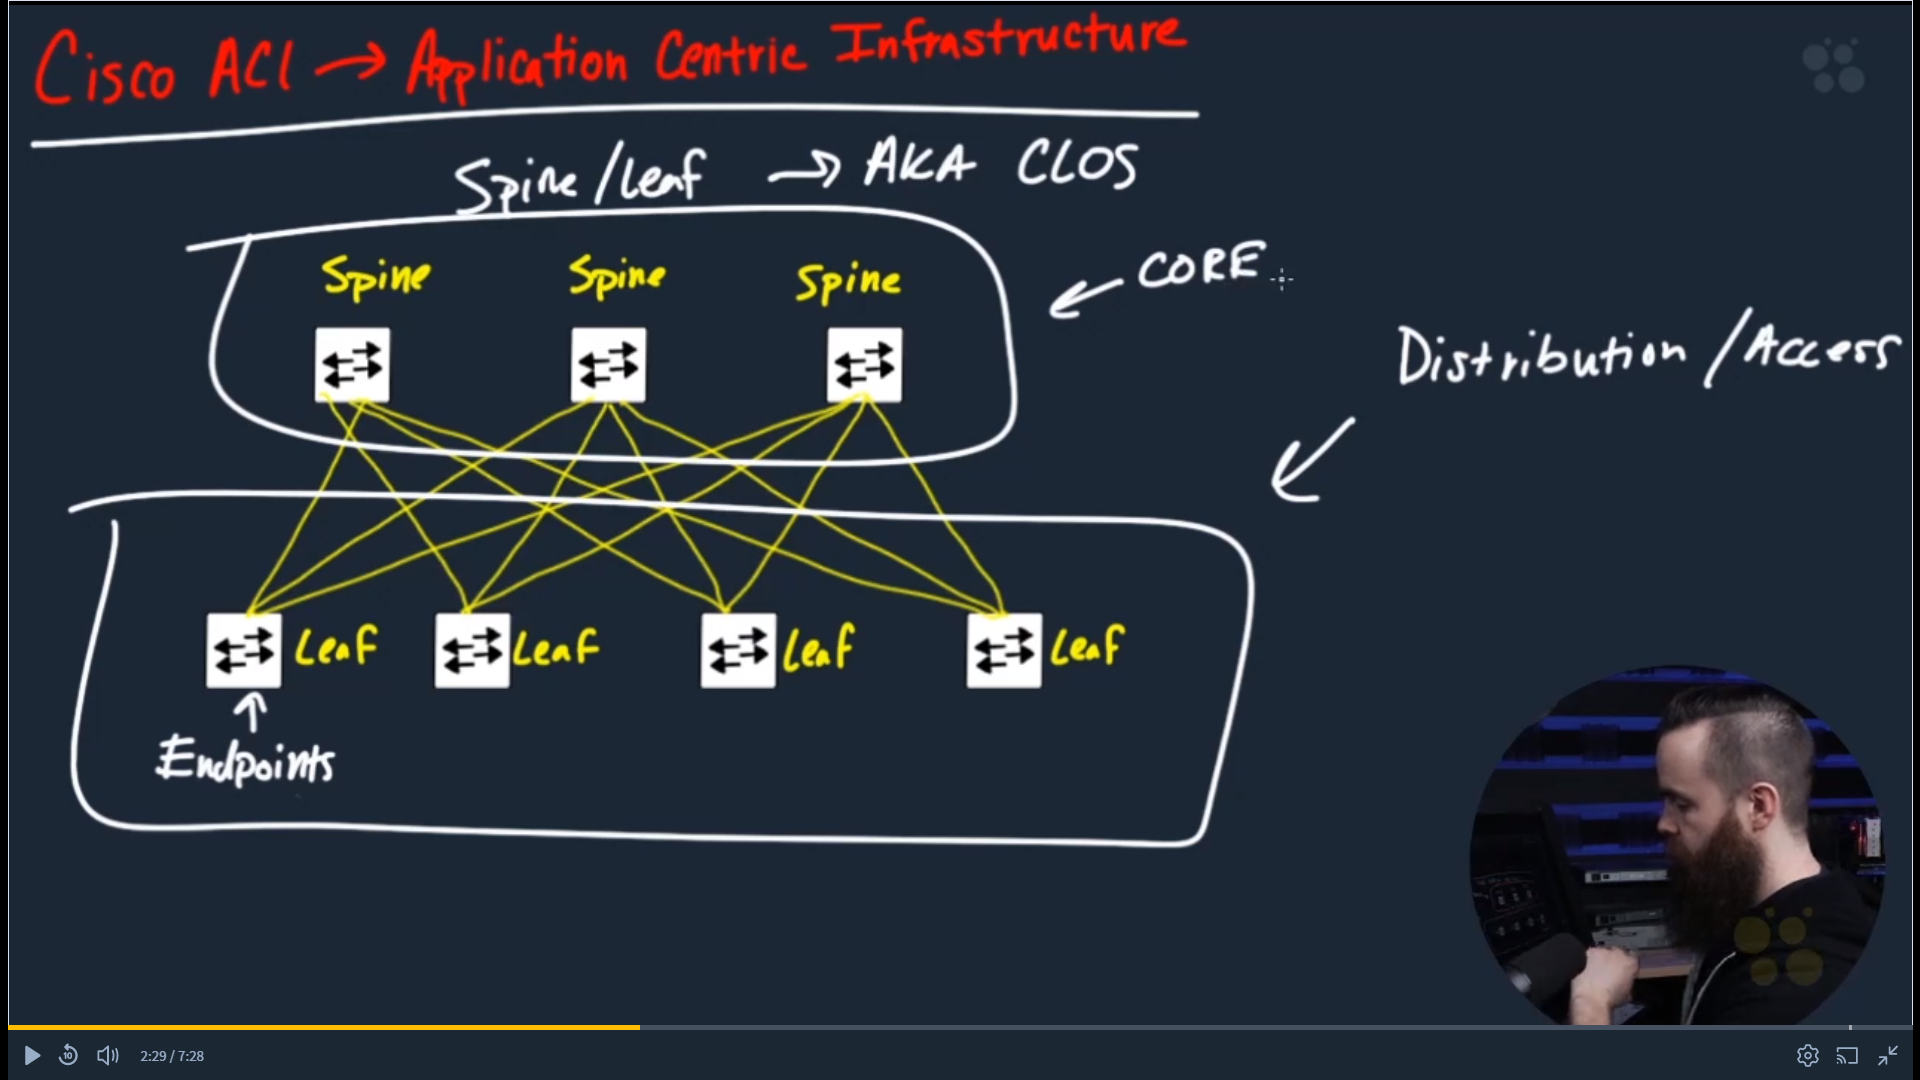 Cisco ACI → Application Centric Infrastructure
Spine/Leaf → AKA CLOS
Spine Spine Spine
← CORE
Distribution/Access
Leaf Leaf Leaf Leaf
Endpoints
10
2:29 / 7:28